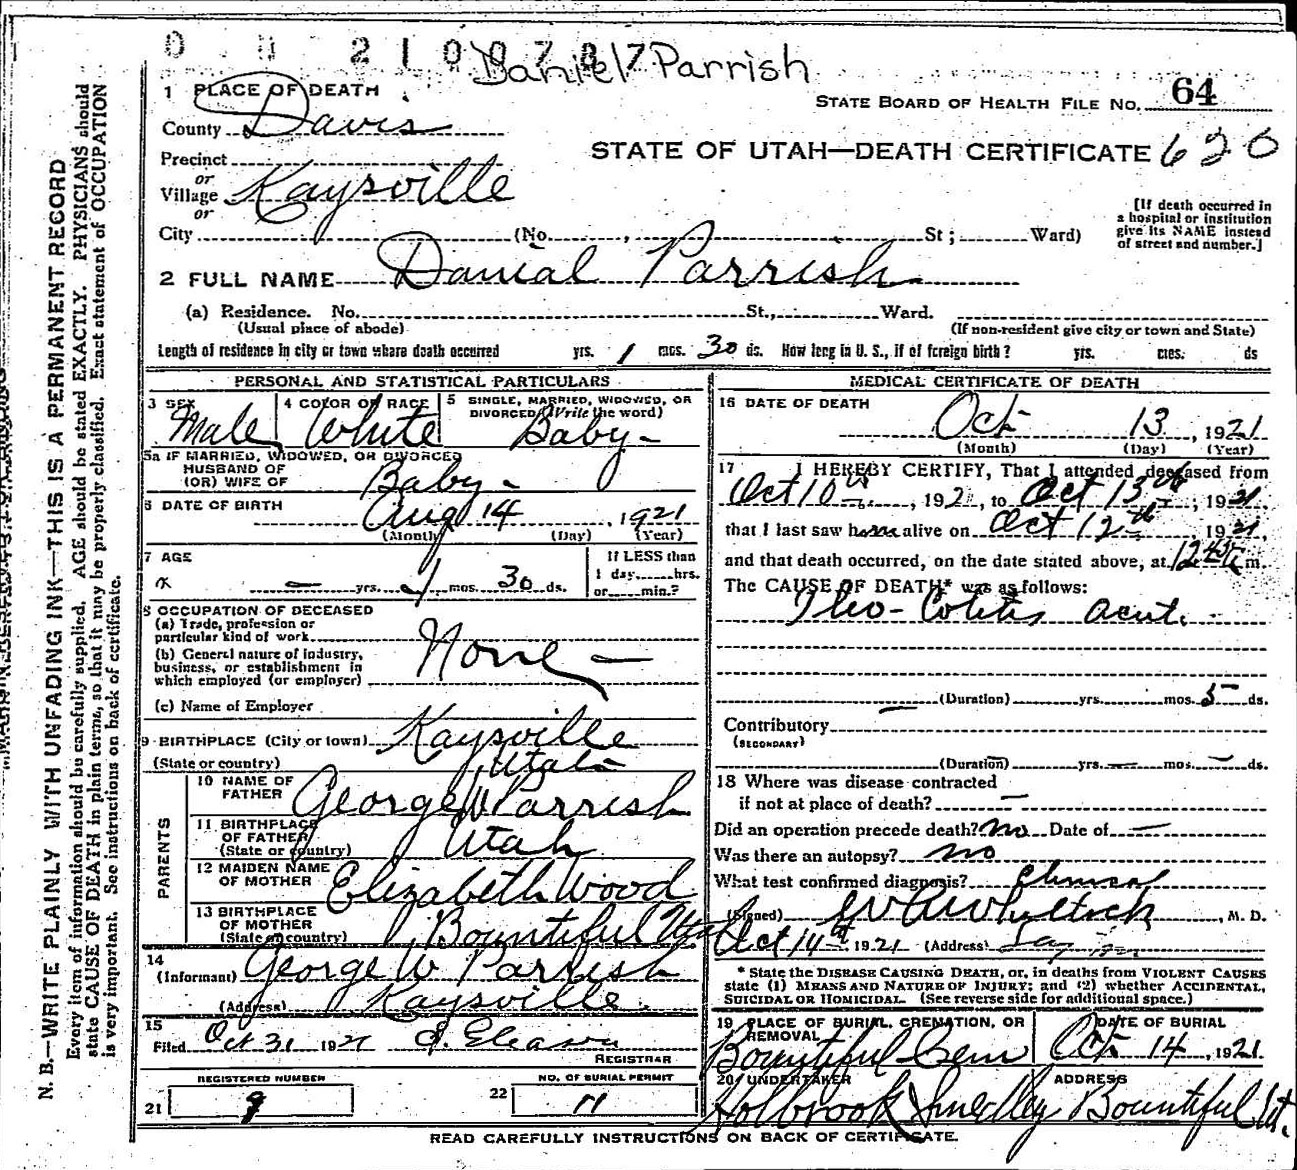 0 2 1 0 0 7 8 7
Daniel Parrish
1 PLACE OF DEATH
STATE BOARD OF HEALTH FILE NO. 64
County Davis
STATE OF UTAH—DEATH CERTIFICATE 620
Precinct
or
Village Kaysville
or
[If death occurred in
a hospital or institution
give its NAME instead
of street and number.]
City (No. , St; Ward)
2 FULL NAME Danial Parrish
(a) Residence. No. St., Ward.
(Usual place of abode) (If non-resident give city or town and State)
Length of residence in city or town where death occurred yrs. 1 mos. 30 ds. How long in U. S., if of foreign birth? yrs. mos. ds
PERSONAL AND STATISTICAL PARTICULARS
3 SEX
Male
4 COLOR OR RACE
White
5 SINGLE, MARRIED, WIDOWED, OR
DIVORCED (Write the word)
Baby —
5a IF MARRIED, WIDOWED, OR DIVORCED
HUSBAND OF
(OR) WIFE OF Baby —
6 DATE OF BIRTH Aug 14, 1921
(Month) (Day) (Year)
7 AGE
— yrs. 1 mos. 30 ds.
If LESS than
1 day......hrs.
or......min.?
8 OCCUPATION OF DECEASED
(a) Trade, profession or
particular kind of work
None —
(b) General nature of industry,
business, or establishment in
which employed (or employer)
(c) Name of Employer
9 BIRTHPLACE (City or town) Kaysville
(State or country) Utah
PARENTS
10 NAME OF
FATHER George W Parrish
11 BIRTHPLACE
OF FATHER
(State or country) Utah
12 MAIDEN NAME
OF MOTHER Elizabeth Wood
13 BIRTHPLACE
OF MOTHER
(State or country) Bountiful Utah
14
(Informant) George W Parrish
(Address) Kaysville
15
Filed Oct 31 1921
REGISTRAR
REGISTERED NUMBER
21 9
NO. OF BURIAL PERMIT
22 11
MEDICAL CERTIFICATE OF DEATH
16 DATE OF DEATH
Oct 13, 1921
(Month) (Day) (Year)
17 I HEREBY CERTIFY, That I attended deceased from
Oct 10th, 1921, to Oct 13th, 1921,
that I last saw him alive on Oct 12th 1921,
and that death occurred, on the date stated above, at 12 45 m.
The CAUSE OF DEATH* was as follows:
Ileo-Colitis acut.
(Duration) yrs. mos. 5 ds.
Contributory
(SECONDARY)
— (Duration) yrs. — mos. — ds.
18 Where was disease contracted
if not at place of death? —
Did an operation precede death? no Date of —
Was there an autopsy? no
What test confirmed diagnosis? Clinical
(Signed) , M. D.
Oct 14th 1921 (Address)
* State the DISEASE CAUSING DEATH, or, in deaths from VIOLENT CAUSES
state (1) MEANS AND NATURE OF INJURY; and (2) whether ACCIDENTAL,
SUICIDAL OR HOMICIDAL. (See reverse side for additional space.)
19 PLACE OF BURIAL, CREMATION, OR
REMOVAL
Bountiful Cem
DATE OF BURIAL
Oct 14, 1921
20 UNDERTAKER
Holbrook Smedley
ADDRESS
Bountiful Ut.
READ CAREFULLY INSTRUCTIONS ON BACK OF CERTIFICATE.
N. B.—WRITE PLAINLY WITH UNFADING INK—THIS IS A PERMANENT RECORD
Every item of information should be carefully supplied. AGE should be stated EXACTLY. PHYSICIANS should
state CAUSE OF DEATH in plain terms, so that it may be properly classified. Exact statement of OCCUPATION
is very important. See instructions on back of certificate.